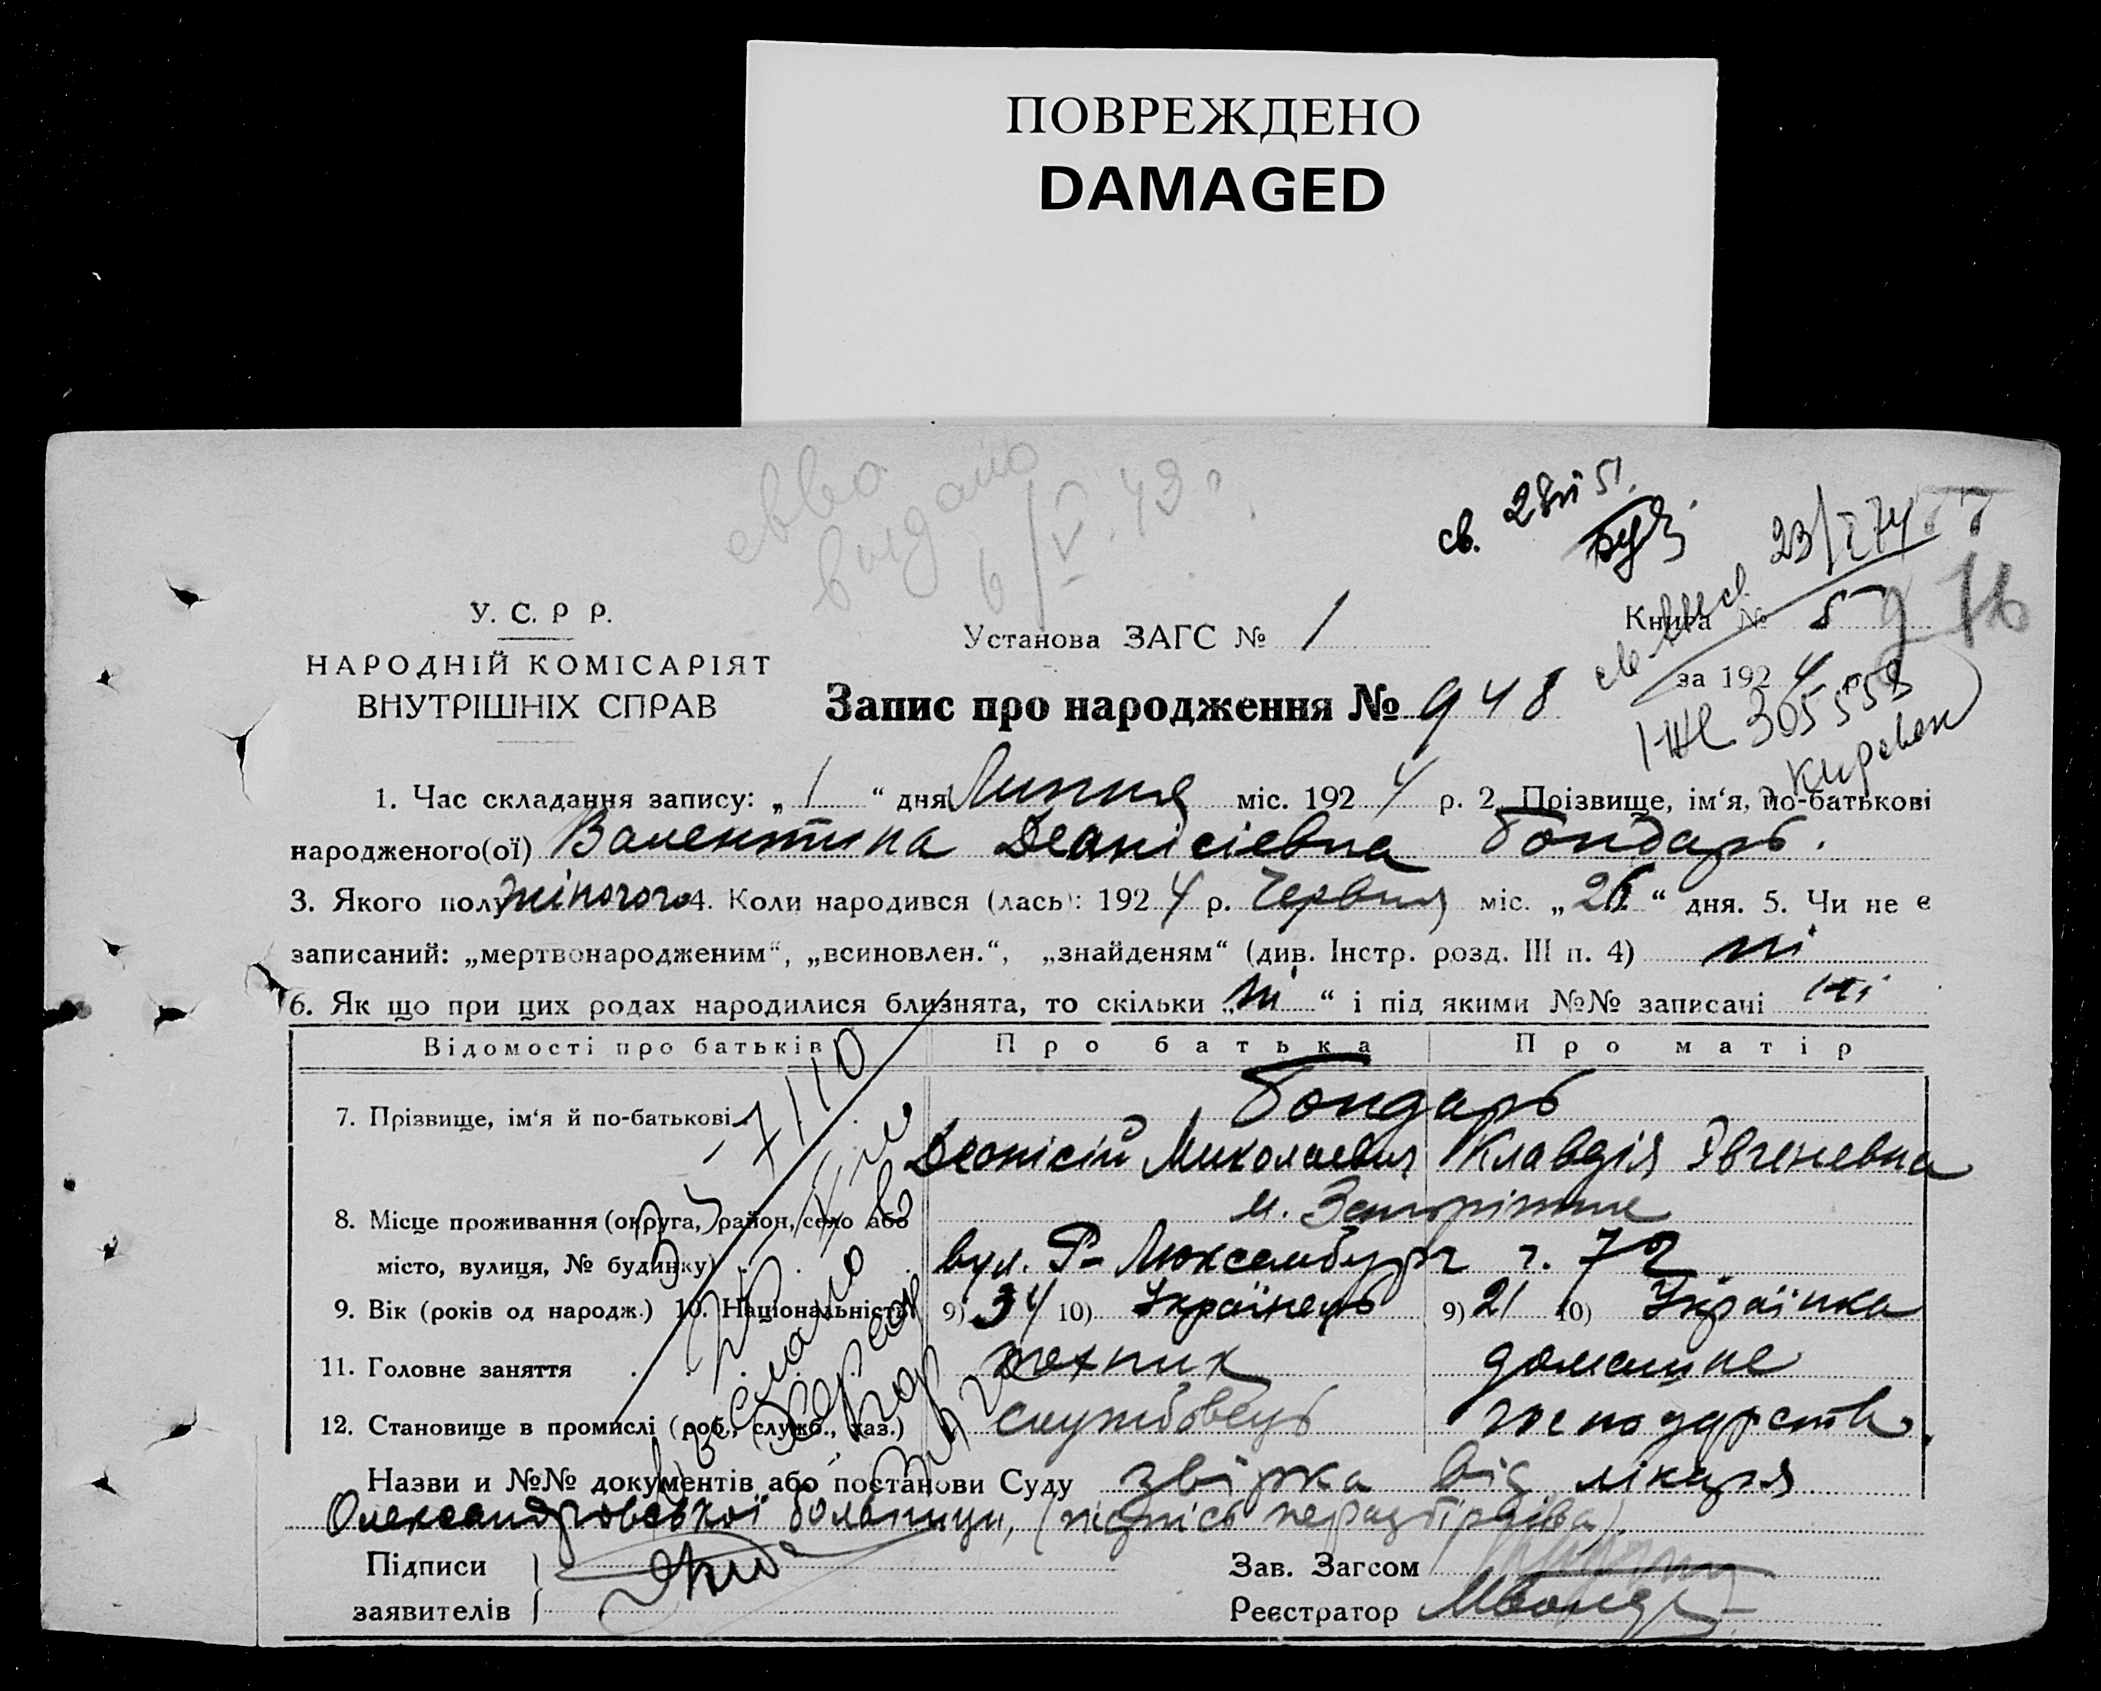 ПОВРЕЖДЕНО
DAMAGED
св. 28 VI 51.
23/I 74
У. С. Р Р.
НАРОДНІЙ КОМІСАРІЯТ
ВНУТРІШНІХ СПРАВ
Установа ЗАГС № 1
Книга № 5
за 1924 р.
Запис про народження № 948
305553
1. Час складання запису: „1“ дня Липня міс. 1924 р. 2. Прізвище, ім‘я, по-батькові
народженого(ої) Валентина Деонісіевна Бондарь.
3. Якого полу жіночого 4. Коли народився (лась): 1924 р. Червня міс. „26“ дня. 5. Чи не є
записаний: „мертвонародженим“, „всиновлен.“, „знайденям“ (див. Інстр. розд. III п. 4) ні
6. Як що при цих родах народилися близнята, то скільки „ні“ і під якими №№ записані ні
Відомості про батьків Про батька Про матір
7. Прізвище, ім‘я й по-батькові Бондарь
Деонісій Миколаевич Клавдія Євгеневна
8. Місце проживання (округа, район, село або м. Запоріжжє
місто, вулиця, № будинку) вул. Р-Люксембург ч. 72
9. Вік (років од народж.) 10. Національність 9) 34 10) Українець 9) 21 10) Українка
11. Головне заняття технік домашне
12. Становище в промислі (роб., служб., хаз.) службовець господарств.
Назви и №№ документів або постанови Суду звірка від лікаря
Олександровської больниці, (підпісь неразбірліва).
Підписи
заявителів
Зав. Загсом
Реєстратор